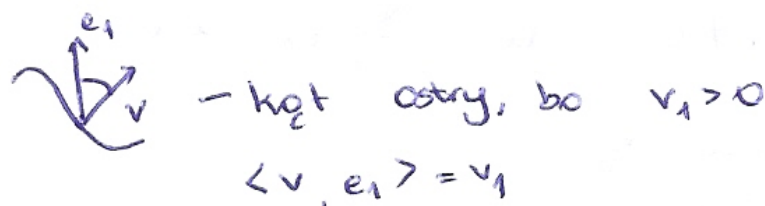 e₁
v - kąt ostry, bo v₁ > 0
<v, e₁> = v₁